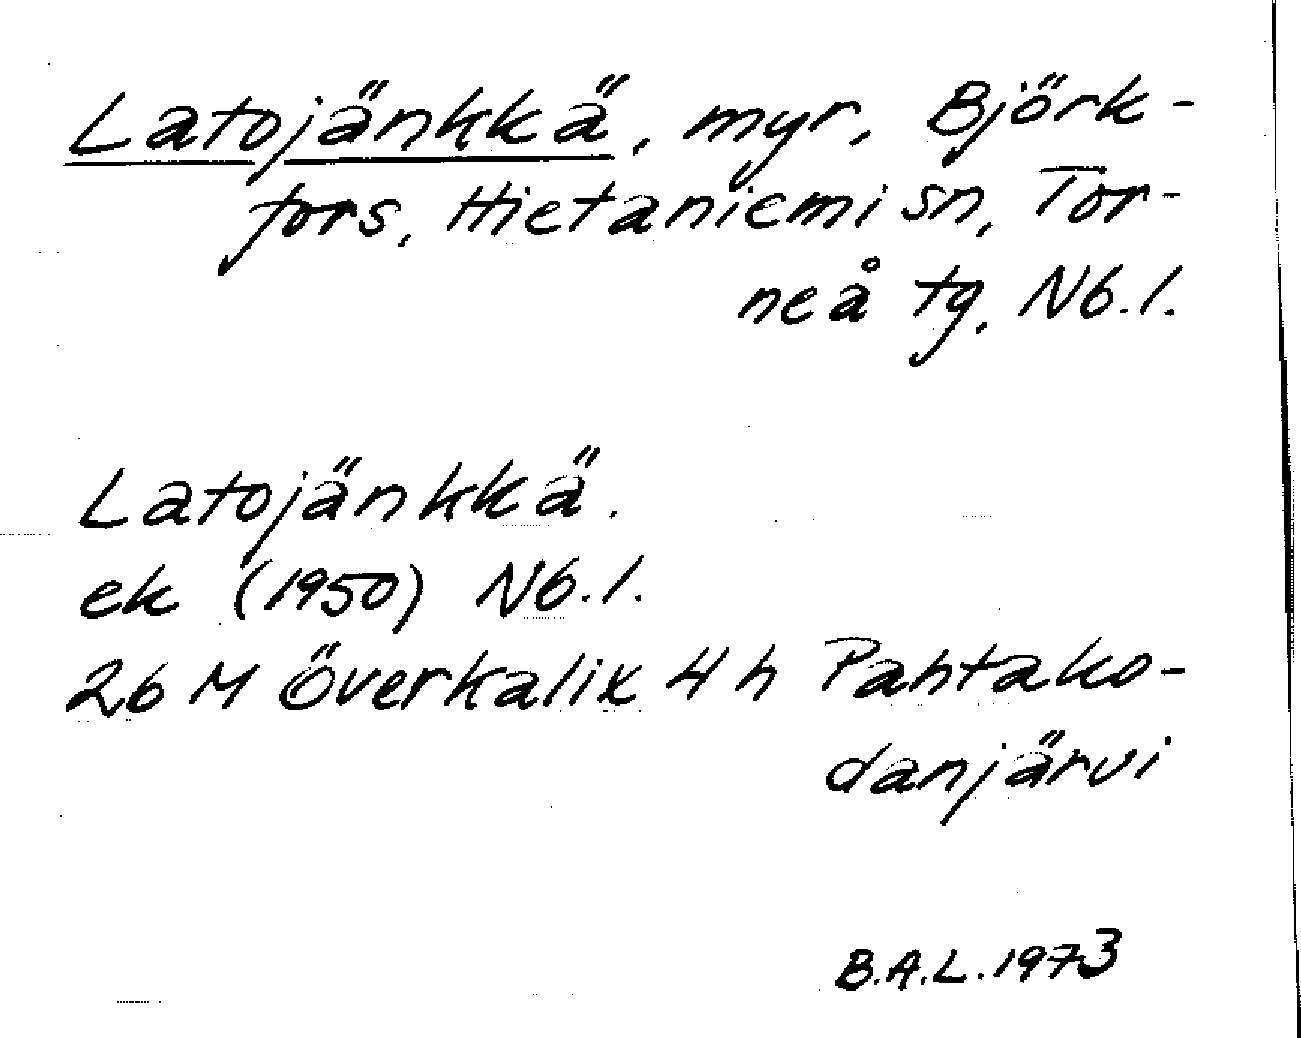 Latojänkkä, myr, Björk-
fors, Hietaniemi sn, Tor-
neå tg, Nb. l.
Latojänkkä.
ek (1950) Nb. l.
26 M Överkalix 4 h Pahtako-
danjärvi
B.A.L. 1973